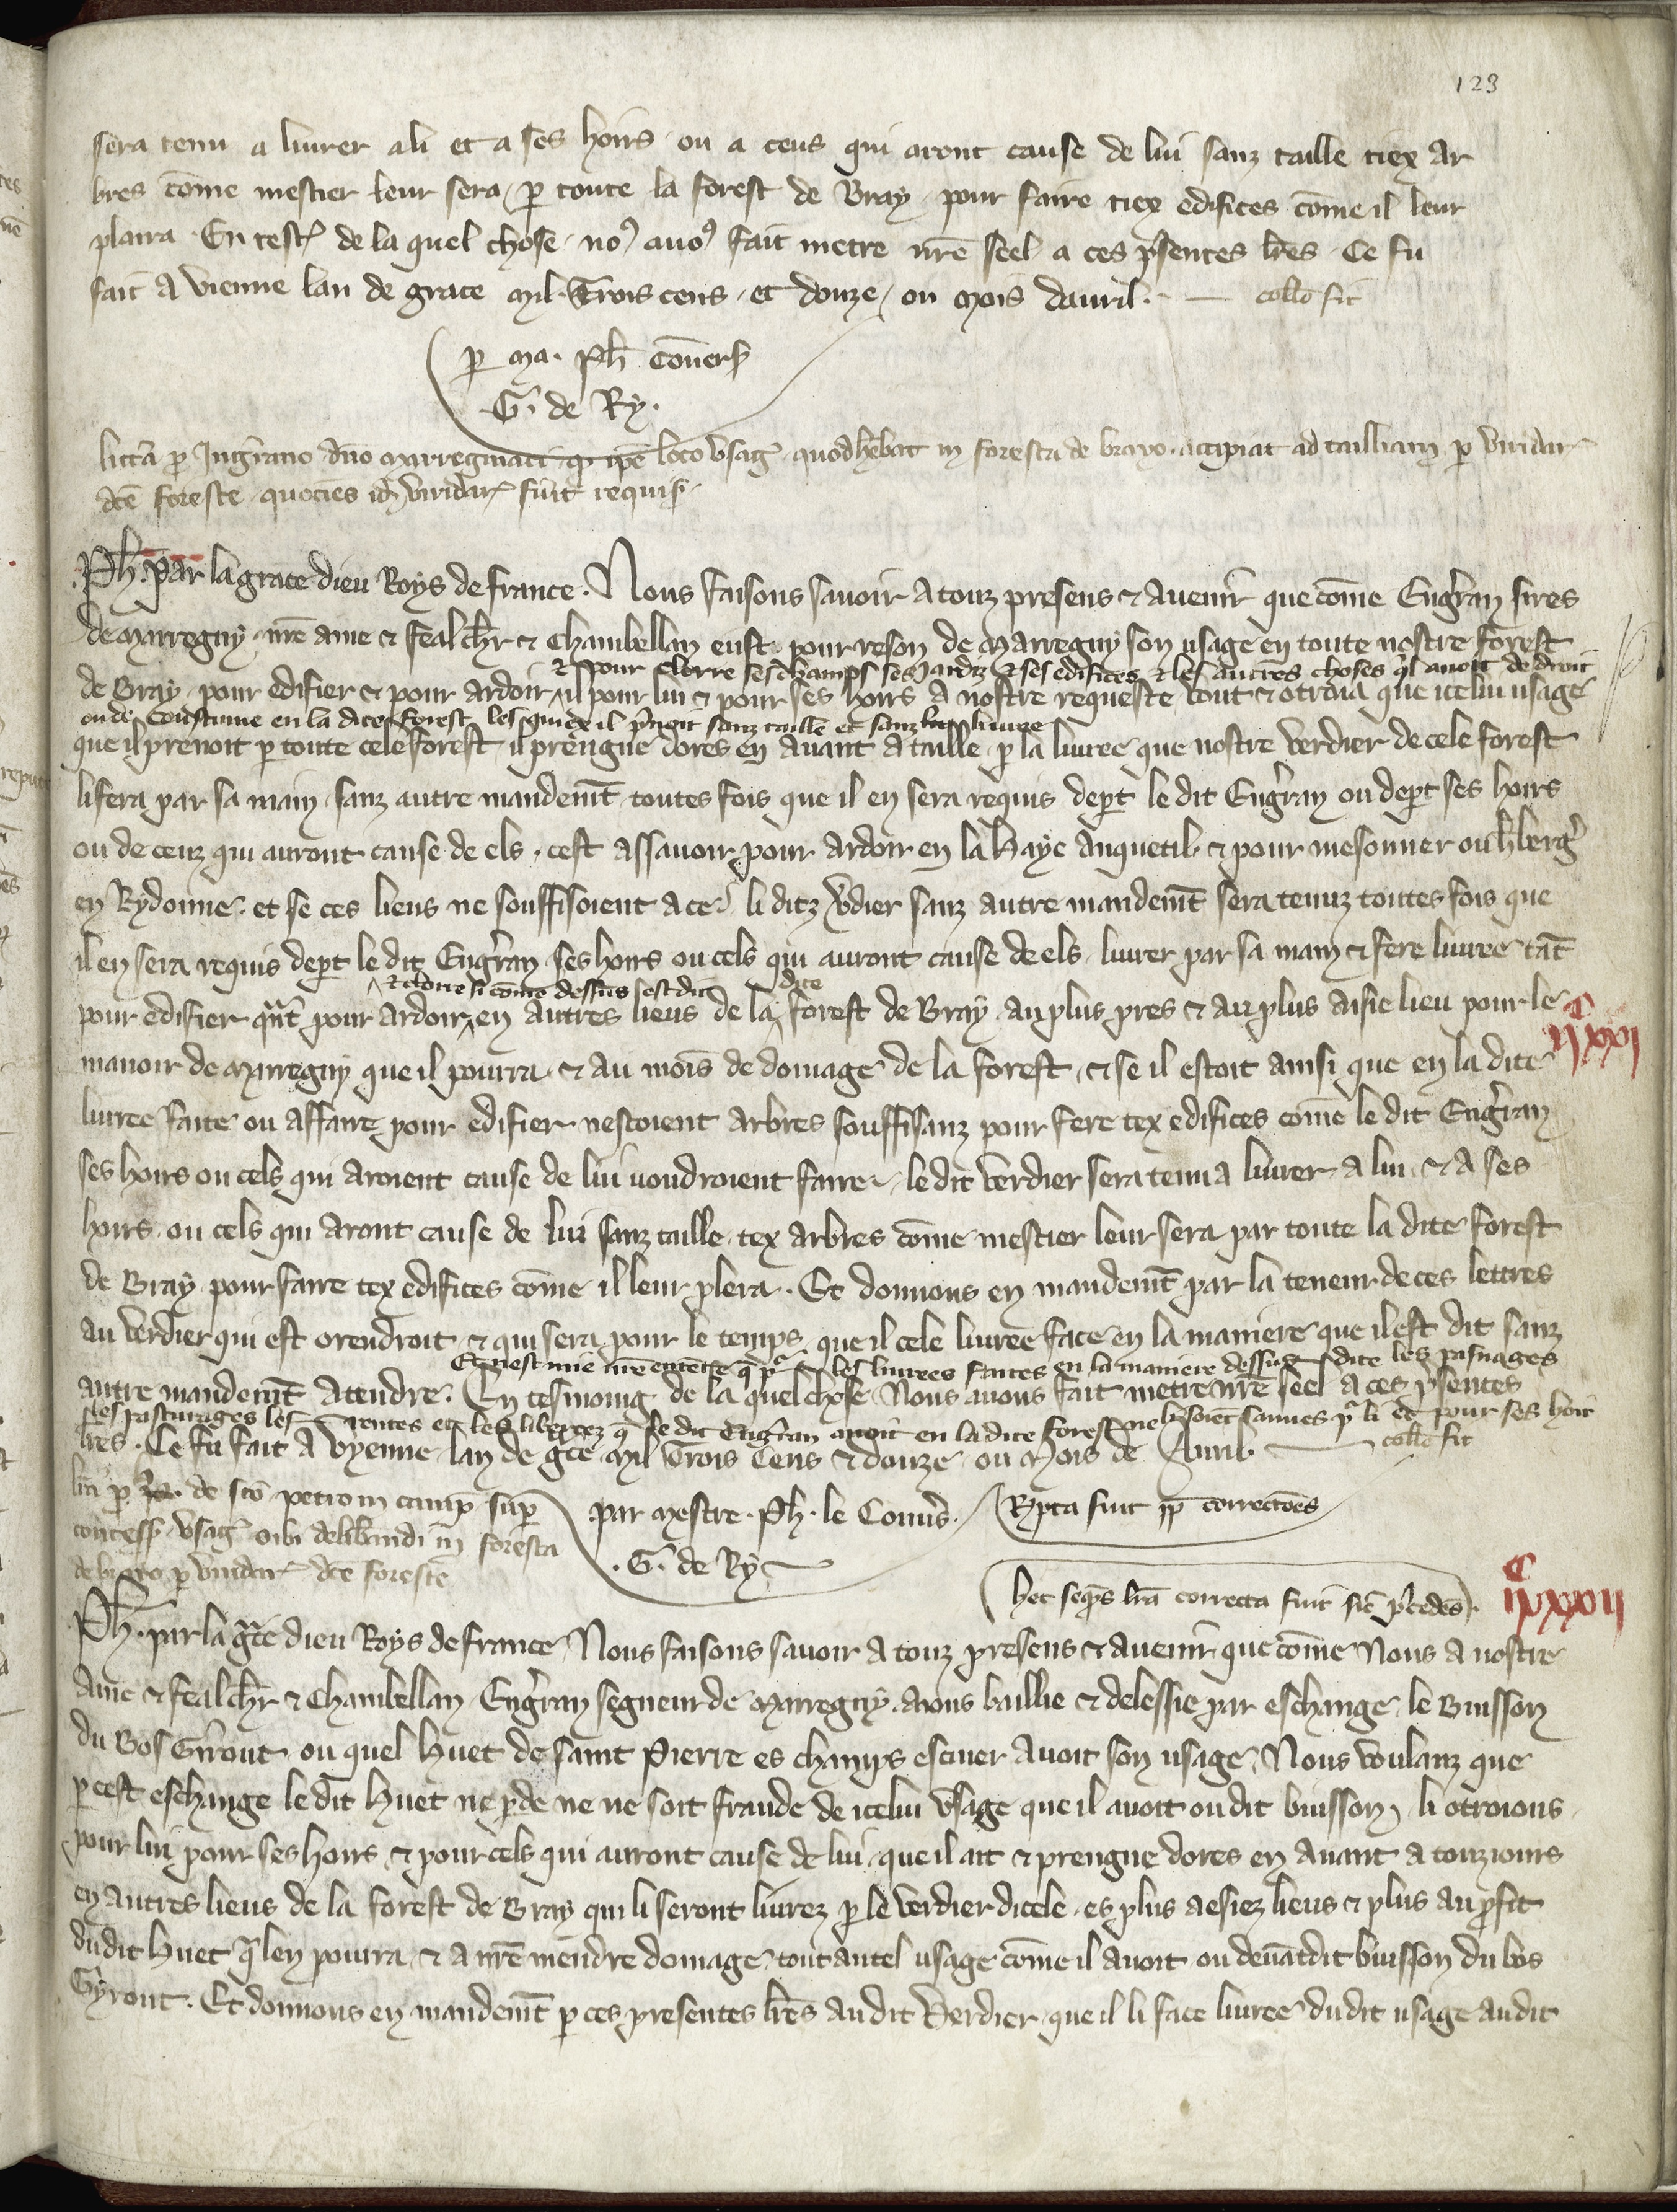 123
sera tenu a livrer a li et a ses hoirs ou a ceus qui aront cause de lui sanz taille tiex ar
bres cōme mestier leur sera p̄ toute la forest de Bray pour faire tiex edifices cōme il leur
plaira. En tesť de la quel chose noꝰ avōꝰ fait metre nr̄e seel a ces p̄sentes lr̄es. Ce fu
fait a Vienne lan de grace Mil. Trois cens et douze ou mois davril. — coll̄o fit
p̄ ma. Ph̄ Cōuers
G. de Ry.
litt̄a p̄ Ingr̄ano dn̄o Marregniaci q̄ ip̄e loco usaḡ quod h̄ebat in foresta de brayo accipiat ad talliam p̄ viridar̄
dc̄e foreste quociēs id̄ viridar̄ fūit requis̄
Ph̄. par la grace dieu Roys de france. Nous faisons savoir a touz presens & avenir que cōme Engr̄ran sires
de Marregny nr̄e ame & feal ch̄r & Chambellan eust pour reson de Marregny son usage en toute nostre forest
& pour clorre ses champs ses jardz & ses edifices & les autres choses q̄l avoit de droit
de Bray pour edifier & pour ardoir il pour lui & pour ses hoirs a nostre requeste vout & otroia que icelui usage
ou de coustume en la dite forest les quiex il p̄noit sanz taille et sanz livree
que il prenoit p̄ toute cele forest il prengne dores en avant a taille p̄ la livree que nostre verdier de cele forest
li fera par sa main sanz autre mandem̄t toutes fois que il en sera requis dep̄t le dit Engr̄an ou dep̄t ses hoirs
ou de ceuz qui auront cause de els cest assavoir pour ardoir en la Haye Anquetil & pour mesonner ou h̄berḡ
en Rydonne et se ces lieus ne souffisoient a ce li ditz v̄dier sanz autre mandem̄t sera tenuz toutes fois que
il en sera requis dep̄t le dit Engr̄an ses hoirs ou cels qui auront cause de els livrer par sa main & fere livree tāt
& clorre si cōme dessus est dit dite
pour edifier q̄nt pour ardoir en autres lieus de la forest de Bray au plus pres & au plus aisie lieu pour le
iiijxxxi
manoir de Marregny que il pourra & au mois de domage de la forest & se il estoit ainsi que en la dite
livree faite ou affaire pour edifier nestoient arbres souffisanz pour fere tex edifices cōme le dit Engr̄an
ses hoirs ou cels qui aroient cause de lui voudroient faire le dit verdier sera tenu a livrer a lui & a ses
hoirs ou cels qui aront cause de lui sanz taille tex arbres cōme mestier leur sera par toute la dite forest
de Bray pour faire tex edifices cōme il leur plera. Et donnons en mandem̄t par la teneur de ces lettres
au verdier qui est orendroit & qui sera pour le temps que il cele livree face en la maniere que il est dit sanz
Et nest mie nr̄e entente q̄ p̄ les livrees faites en la maniere dessus dite les pasnages
autre mandem̄t atendre. En tesmoing de la quel chose Nous avons fait metre nr̄e seel a ces p̄sentes
les pasturages les rentes et les libertez q̄ le dit Engr̄an avoit en la dite forest ne li soiēt sauves p̄ li et pour ses hoirs
lr̄es. Ce fu fait a Vyenne lan de gr̄ce Mil Trois Cens & douze ou mois de Avril — coll̄o fit
litt̄a p̄ de sc̄o petro in camp̄ sup̄
concess̄ usaḡ sibi delib̄andi in foresta
de brayo p̄ viridar̄ dc̄e foreste
par Mestre. Ph. le Conv̄s.
.G. de Ry
Rp̄ta fuit pp̄ correctōes
hec seq̄ns lr̄a correcta fuit sic p̄cedēs.
iiijxxxii
Ph̄. par la gr̄ce dieu Roys de france Nous faisons savoir a touz presens & avenir que cōme Nous a nostre
ame & feal ch̄r & Chambellan Engr̄an segneur de Marregny avons baillie & delessie par eschange le Buisson
du Bos Girout ou quel Huet de saint Pierre es champs escuier avoit son usage Nous voulanz que
p̄ cest eschange le dit Huet ne p̄de ne ne soit fraude de icelui usage que il avoit ou dit buisson li otroions
pour lui pour ses hoirs & pour cels qui auront cause de lui que il ait & prengne dores en avant a touz iours
en autres lieus de la forest de Bray qui li seront livrez p̄ le verdier dicele es plus aesiez lieus & plus au p̄fit
du dit Huet q̄ len pourra & a nr̄e mendre domage tout autel usage cōme il avoit ou devātdit buisson du bos
Gyrout. Et donnons en mandem̄t p̄ ces presentes lr̄es au dit Verdier que il li face livree du dit usage au dit